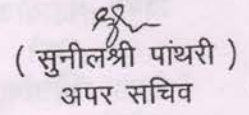 ( सुनीलश्री पांथरी )
अपर सचिव